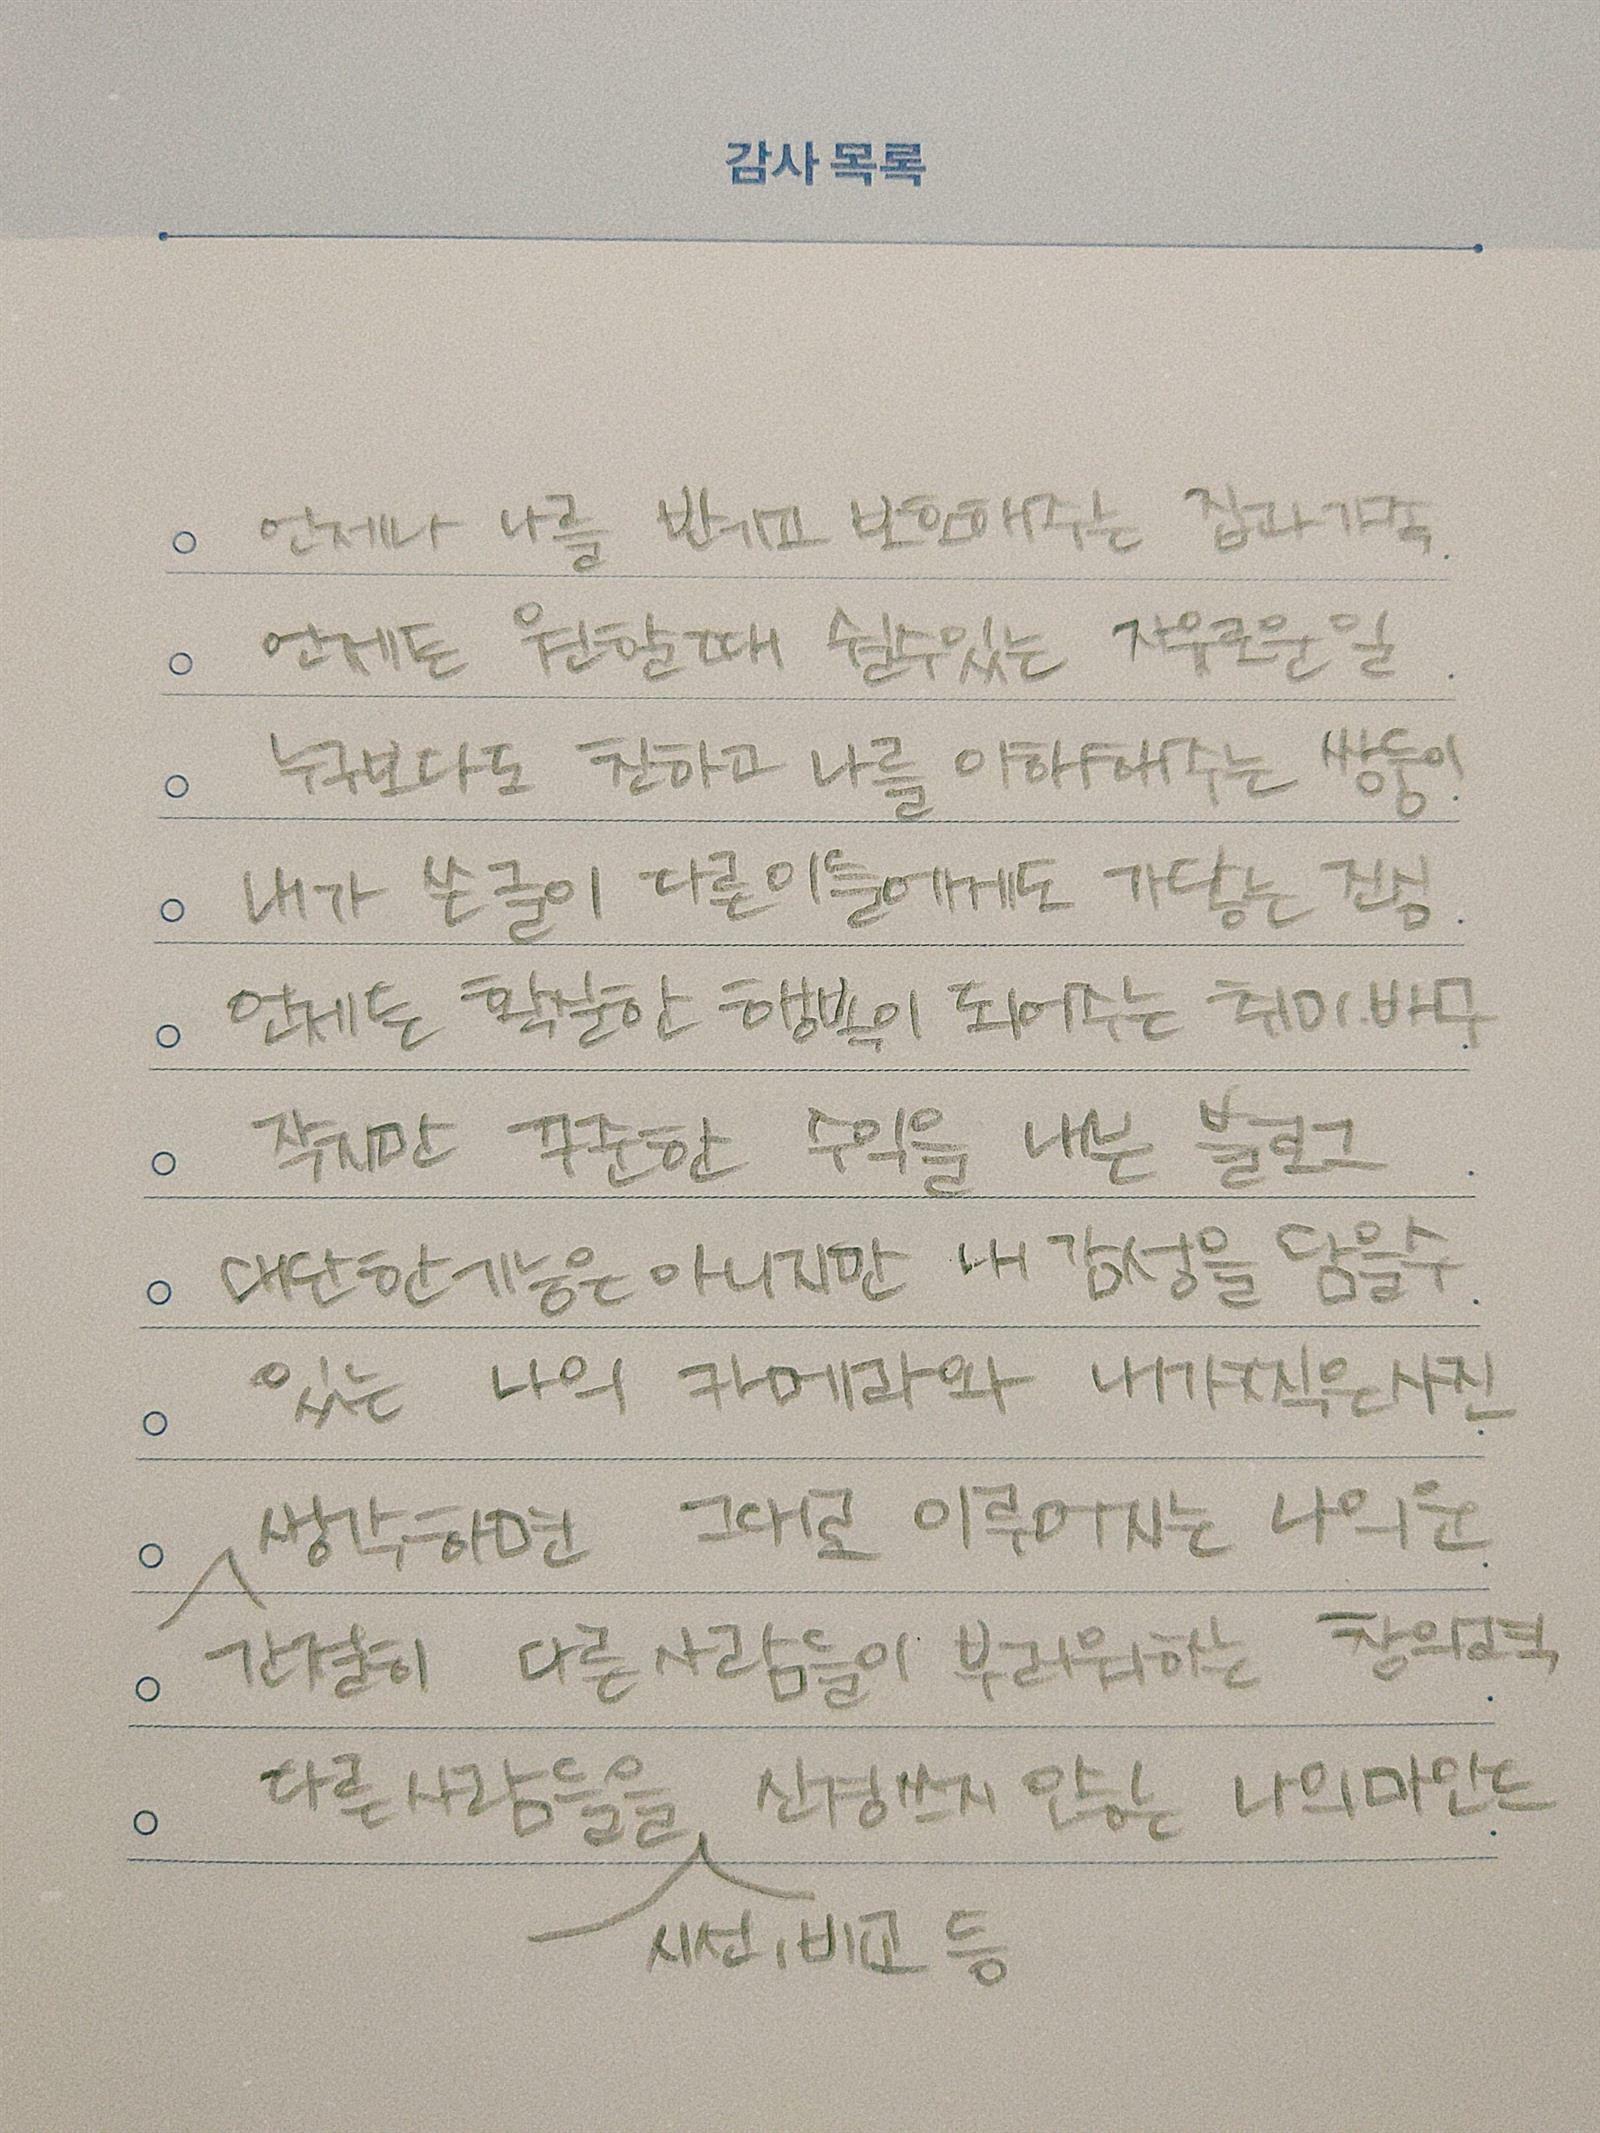 감사 목록
언제나 나를 반기고 보호해주는 집과 가족
언제든 원할때 쉴수있는 자유로운 일
누구보다도 친하고 나를 이해해주는 쌍둥이
내가 쓴글이 다른이들에게도 가닿는 진심
언제든 확실한 행복이 되어주는 취미.
작지만 꾸준한 수익을 내는 블로그
대단한기능은 아니지만 내 감성을 담을수
있는 나의 카메라와 내가찍은사진
생각하면 그대로 이루어지는 나의운
간절히 다른사람들이 부러워하는 창의력
다른사람들을 신경쓰지 않는 나의마인드
시선, 비교 등